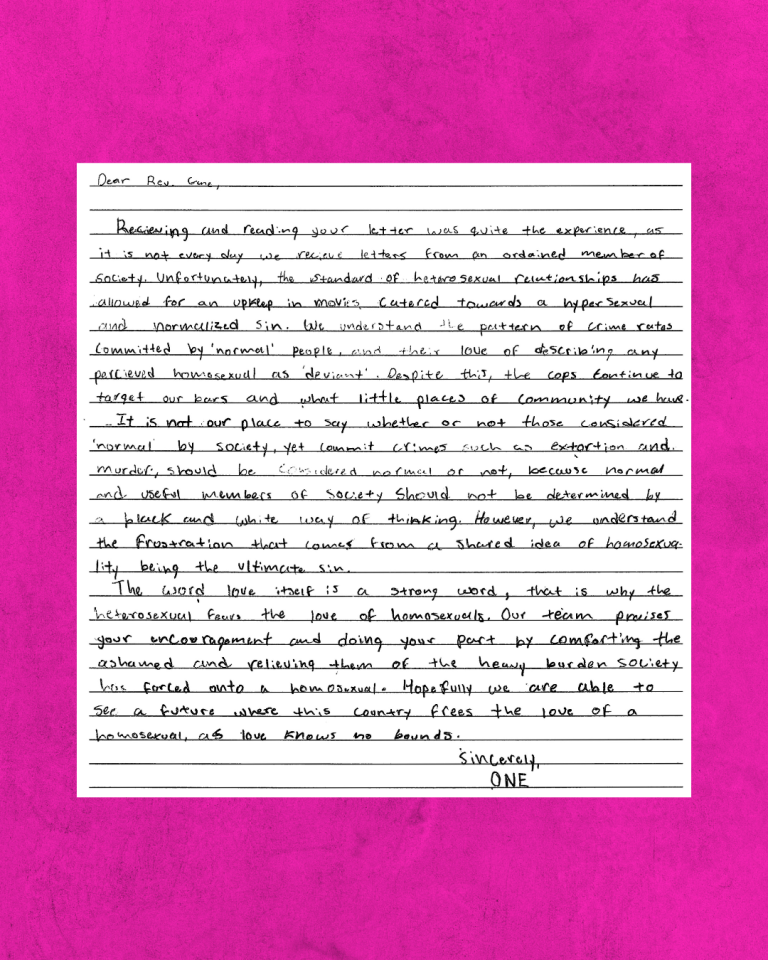 Dear Rev. Crane,
Recieving and reading your letter was quite the experience, as
it is not every day we recieve letters from an ordained member of
society. Unfortunately, the standard of heterosexual relationships has
allowed for an upkeep in movies catered towards a hyper sexual
and normalized sin. We understand the pattern of crime rates
committed by 'normal' people, and their love of describing any
percieved homosexual as 'deviant'. Despite this, the cops continue to
target our bars and what little places of community we have.
It is not our place to say whether or not those considered
'normal' by society, yet commit crimes such as extortion and
murder, should be considered normal or not, because normal
and useful members of society should not be determined by
a black and white way of thinking. However, we understand
the frustration that comes from a shared idea of homosexua-
lity being the ultimate sin.
The word love itself is a strong word, that is why the
heterosexual fears the love of homosexuals. Our team praises
your encouragement and doing your part by comforting the
ashamed and relieving them of the heavy burden society
has forced onto a homosexual. Hopefully we are able to
see a future where this country frees the love of a
homosexual, as love knows no bounds.
Sincerely,
ONE